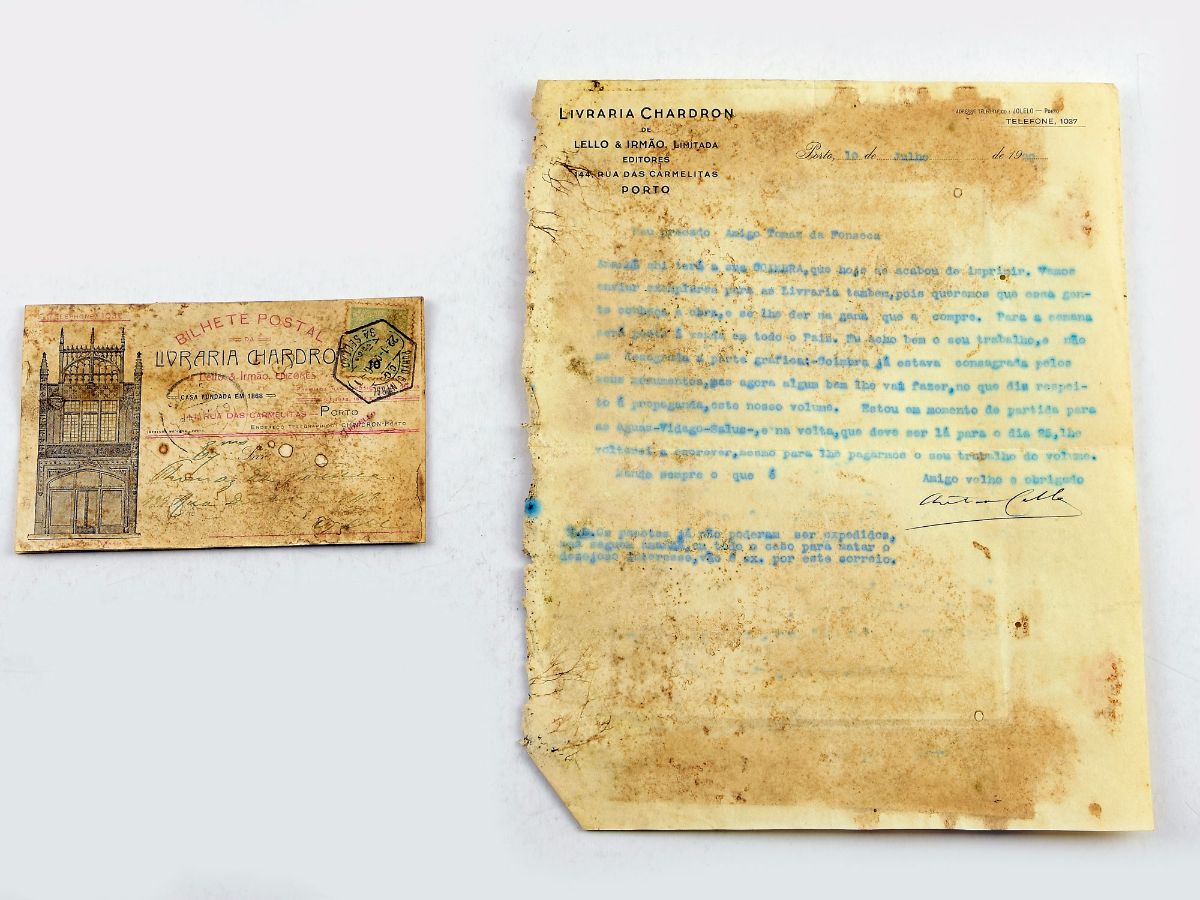 TELEPHONE 1037
BILHETE POSTAL
DA
LIVRARIA CHARDRON
DE LELLO & IRMÃO, EDITORES
CASA FUNDADA EM 1868
144, RUA DAS CARMELITAS PORTO
ENDEREÇO TELEGRAPHICO CHARDRON-PORTO
LIVRARIA CHARDRON
DE
LELLO & IRMÃO, LIMITADA
EDITORES
144, RUA DAS CARMELITAS
PORTO
ADRESSE TELEGRAFICO: JOLELO — PORTO
TELEFONE, 1037
Porto, 10 de Julho de 19
Meu prezado Amigo Tomaz da Fonseca
Amanhã ahi terá a sua COIMBRA, que hoje se acabou de imprimir. Vamos
enviar exemplares para as Livraria tambem, pois queremos que essa gen-
te conheça a obra, e se lhe der na gana que a compre. Para a semana
será posto á venda em todo o Paiz. Eu acho bem o seu trabalho, e não
me desagrada a parte gráfica: Coimbra já estava consagrada pelos
seus monumentos, mas agora algum bem lhe vai fazer, no que diz respei-
to á propaganda, este nosso volume. Estou em momento de partida para
as aguas-Vidago-Salus-, e na volta, que deve ser lá para o dia 25, lhe
voltarei a escrever, mesmo para lhe pagarmos o seu trabalho do volume.
Mande sempre o que é Amigo velho e obrigado
Os pacotes já não poderam ser expedidos,
em todo o caso para matar o
interesse, vão 2 ex. por este correio.